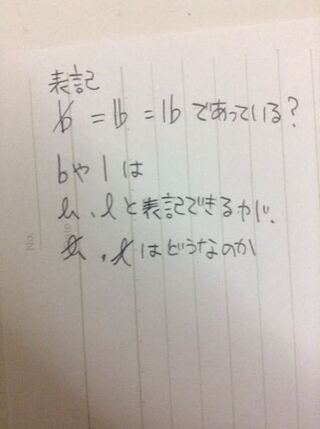 表記
b = lb = lbであっている？
bやlは
b、lと表記できるが、
b、lはどうなのか